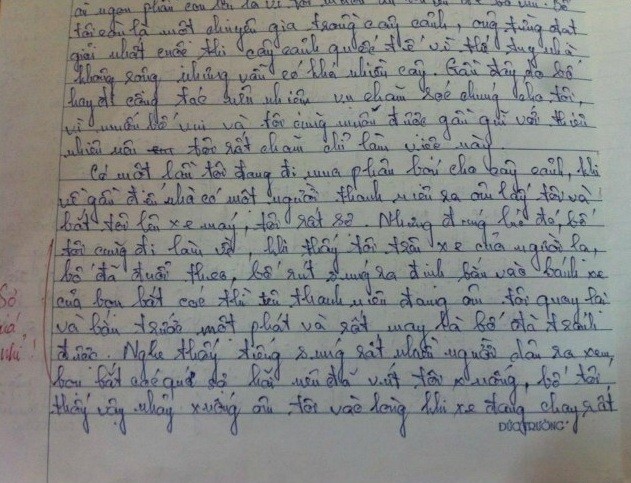 ăn ngon phần còn lại vì tôi
tôi còn là một chuyên gia trồng cây cảnh, ông từng đạt
giải nhất cuộc thi cây cảnh quốc tế vì thế tuy nhà
không rộng nhưng vẫn có khá nhiều cây. Gần đây do bố
hay đi công tác nên nhiệm vụ chăm sóc chúng cho tôi,
vì muốn bố vui và tôi cũng muốn được gần gũi với thiên
nhiên nên tôi rất chăm chỉ làm việc này.
Có một lần tôi đang đi mua phân bón cho cây cảnh, khi
về gần đến nhà có một người thanh niên ra ôm lấy tôi và
bắt tôi lên xe máy, tôi rất sợ. Nhưng đúng lúc đó bố
tôi cũng đi làm về, khi thấy tôi trên xe của người lạ,
bố đã đuổi theo, bố rút súng ra định bắn vào bánh xe
của bọn bắt cóc thì tên thanh niên đang ôm tôi quay lại
và bắn trước một phát và rất may là bố đã tránh
được. Nghe thấy tiếng súng rất nhiều người dân ra xem,
bọn bắt cóc quá sợ hãi nên đã vứt tôi xuống, bố tôi
thấy vậy nhảy xuống ôm tôi vào lòng khi xe đang chạy rất
Sợ
quá
nhỉ!
ĐỨC TRƯỜNG